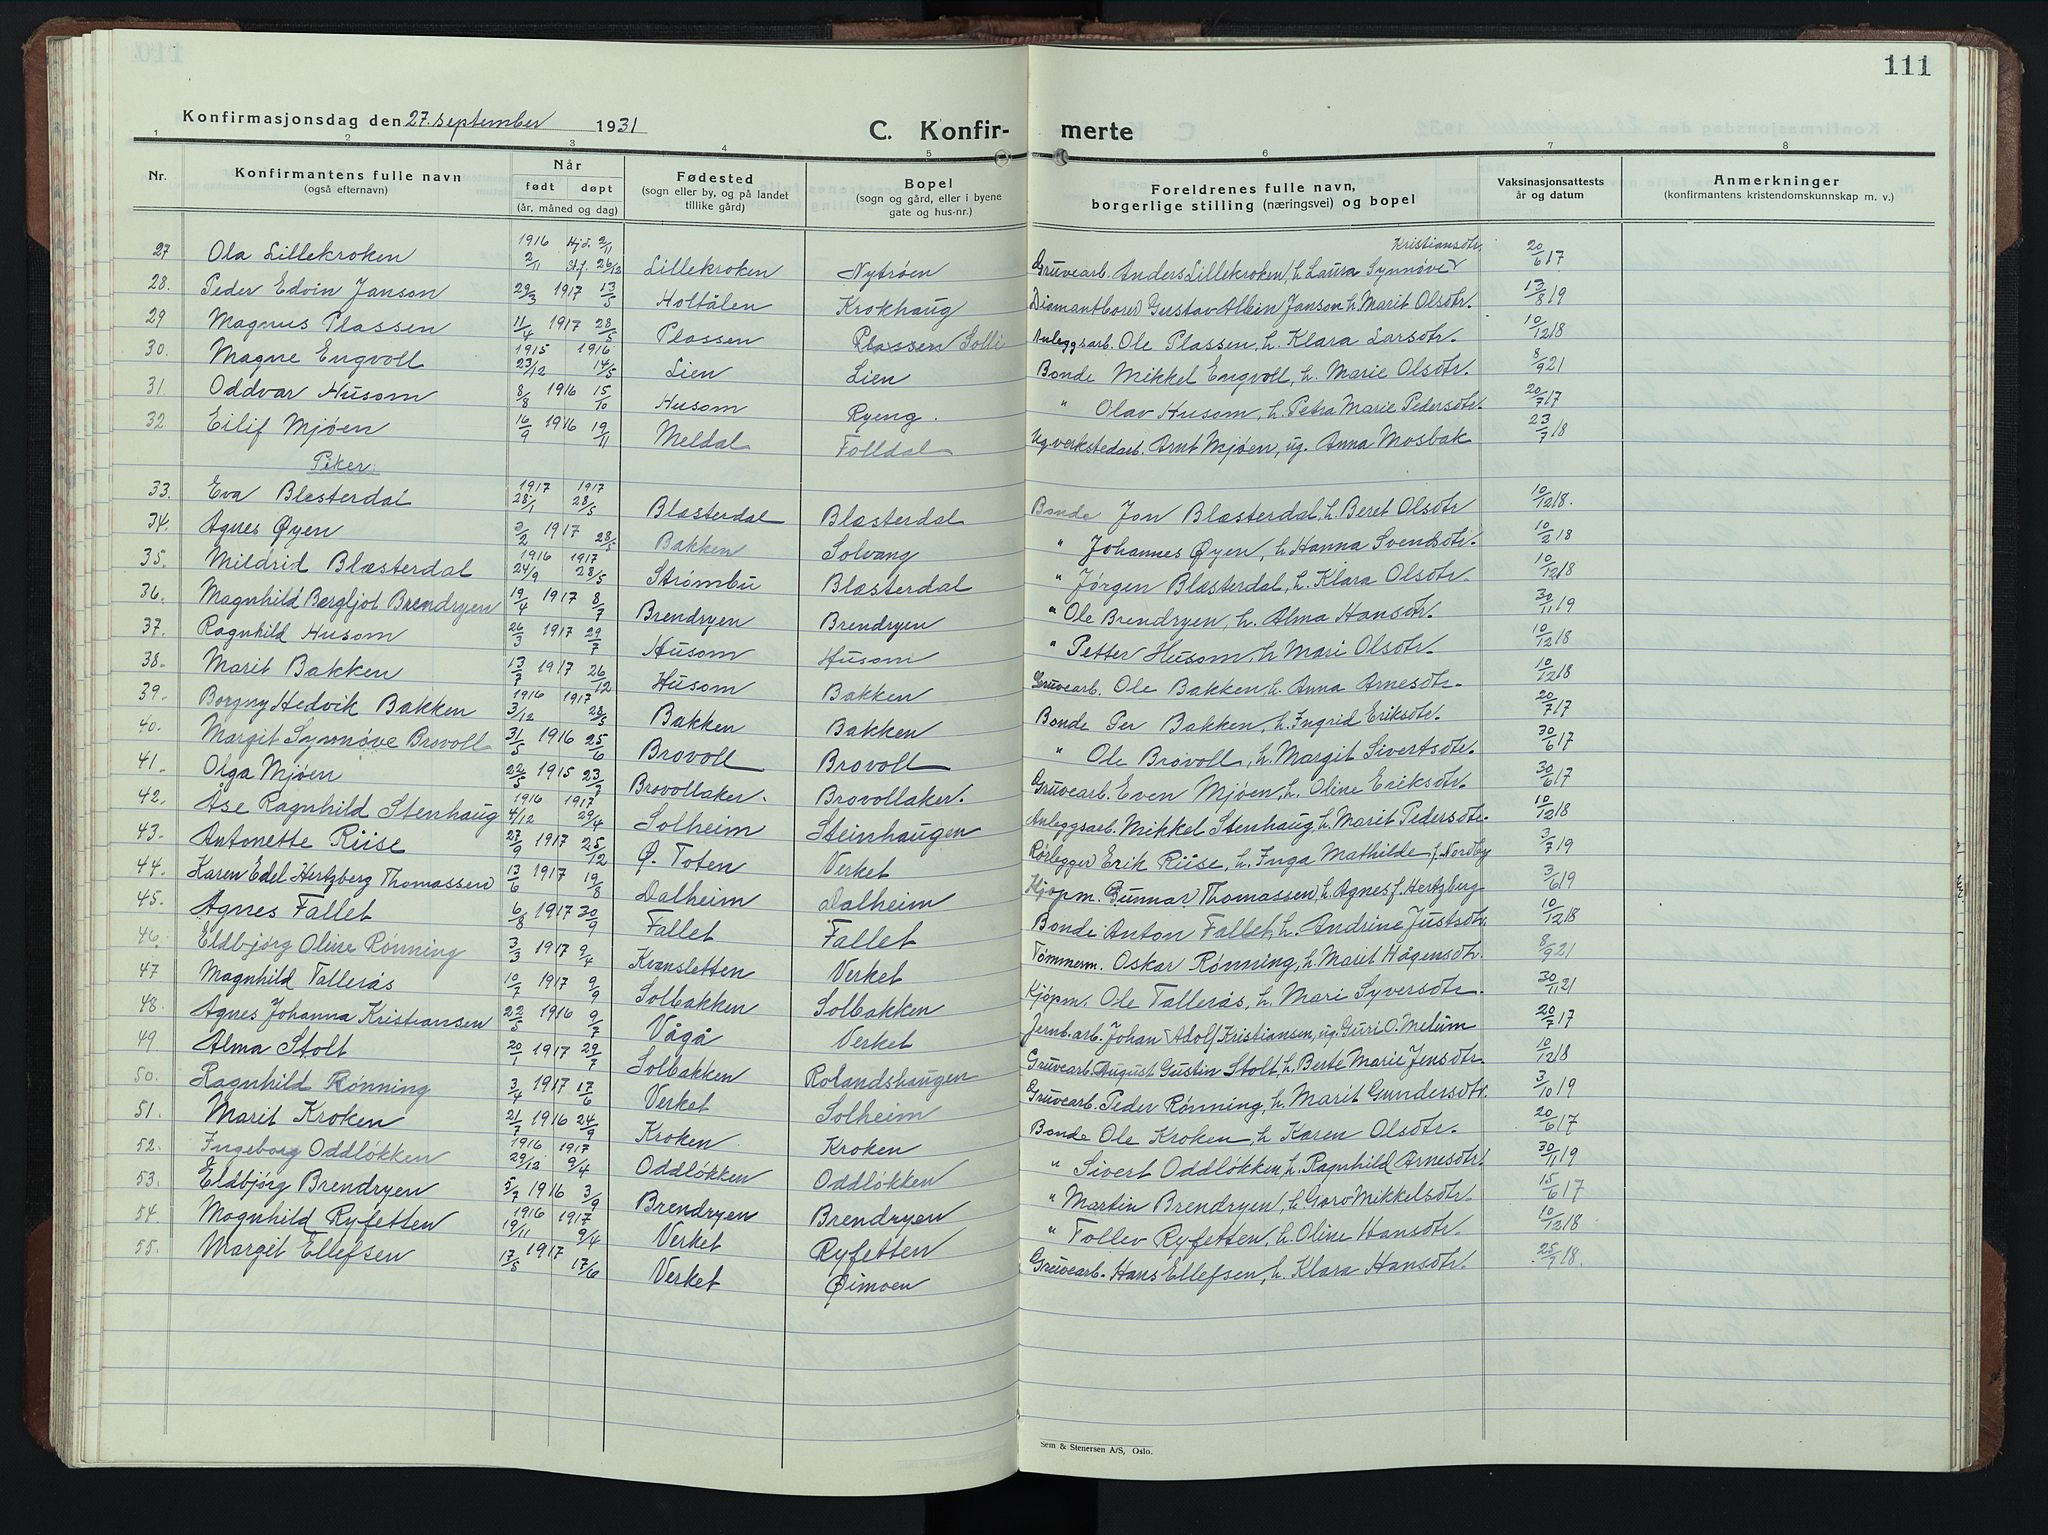 111
Konfirmasjonsdag den 27. september 1931
C. Konfir- merte
1 2 3 4 5 6 7 8
Nr. Konfirmantens fulle navn (også efternavn) Når født døpt (år, måned og dag) Fødested (sogn eller by, og på landet tillike gård) Bopel (sogn og gård, eller i byene gate og hus-nr.) Foreldrenes fulle navn, borgerlige stilling (næringsvei) og bopel Vaksinasjonsattests år og datum Anmerkninger (konfirmantens kristendomskunnskap m. v.)
27 Ola Lillekroken 1916 2/11 Hjd. 2/11 St.f. 26/12 Lillekroken Nytrøen Gruvearb. Anders Lillekroken, h. Laura Synnøve Kristiansdtr. 20/6 17
28. Peder Edvin Janson 29/3 1917 13/5 Holtålen Krokhaug Diamantborer Gustav Albin Janson h. Marit Olsdtr. 13/8 19
29 Magnus Plassen 11/4 1917 28/5 Plassen Plassen Solli Anleggsarb. Ole Plassen, h. Klara Larsdtr. 10/12 18
30. Magne Engvoll 1915 23/12 1916 14/5 Lien Lien Bonde Mikkel Engvoll, h. Marie Olsdtr. 8/9 21
31. Oddvar Husom 8/8 1916 15/10 Husom Ryeng. " Olav Husom, h. Petra Marie Pedersdtr. 20/7 17
32 Eilif Mjøen 16/9 1916 19/11 Meldal Folldal Ug. verkstedarb. Arnt Mjøen, ug. Anna Mosbak 23/7 18
Piker.
33. Eva Blæsterdal 1917 28/1 1917 28/5 Blæsterdal Blæsterdal Bonde Jon Blæsterdal, h. Beret Olsdtr 10/12 18.
34. Agnes Øyen 2/2 1917 28/5 Bakken Solvang " Johannes Øyen, h. Hanna Svendsdtr. 10/2 18
35. Mildrid Blæsterdal 1916 24/9 1917 28/5 Strømbu Blæsterdal " Jørgen Blæsterdal, h. Klara Olsdtr. 10/12 18
36. Magnhild Bergljot Brendryen 19/4 1917 8/7 Brendryen Brendryen " Ole Brendryen, h. Alma Hansdtr. 30/11 19
37. Ragnhild Husom 26/3 1917 29/7 Husom Husom " Petter Husom, h. Mari Olsdtr. 10/12 18
38. Marit Bakken 13/7 1917 26/12 Husom Bakken Gruvearb. Ole Bakken, h. Anna Arnesdtr. 10/12 18
39. Borgny Hedvik Bakken 1916 3/12 1917 28/5 Bakken Bakken Bonde Per Bakken, h. Ingrid Eriksdtr. 20/7 17
40. Margit Synnøve Brovoll 31/5 1916 25/6 Brovoll Brovoll " Ole Brovoll, h. Margit Sivertsdtr. 30/6 17
41. Olga Mjøen 22/5 1915 23/7 Brovollaker. Brovollaker. Gruvearb. Even Mjøen, h. Oline Eriksdtr. 30/6 17
42. Åse Ragnhild Stenhaug 1916 4/12 1917 29/4 Solheim Steinhaugen Anleggsarb. Mikkel Stenhaug, h. Marit Pedersdtr. 10/12 18
43. Antonette Riise 27/9 1917 25/12 Ø. Toten Verket Rørlegger Erik Riise, h. Inga Mathilde f. Nordby 3/7 19
44. Karen Edel Hertzberg Thomassen 13/6 1917 19/8 Dalheim Dalheim Kjøpm. Gunnar Thomassen, h. Agnes f. Hertzberg 3/6 19
45. Agnes Fallet 6/8 1917 30/9 Fallet Fallet Bonde Anton Fallet, h. Andrine Justsdtr. 10/12 18
46. Eldbjørg Oline Rønning 3/3 1917 9/4 Kvansletten Verket Tømmerm. Oskar Rønning, h. Marit Hågensdtr. 8/9 21
47 Magnhild Tallerås 10/7 1917 9/9 Solbakken Solbakken Kjøpm. Ole Tallerås, h. Mari Syversdtr. 30/11 21
48. Agnes Johanna Kristiansen 22/5 1916 9/7 Vågå Verket Jernb.arb. Johan Adolf Kristiansen, ug. Guri O. Melum 20/7 17
49 Alma Stolt 20/1 1917 29/7 Solbakken Rolandshaugen Gruvearb. August Gustin Stolt, h. Berte Marie Jensdtr. 10/12 18
50. Ragnhild Rønning 3/4 1917 17/6 Verket Solheim Gruvearb. Peder Rønning, h. Marit Gundersdtr. 3/10 19
51. Marit Kroken 21/7 1916 24/9 Kroken Kroken Bonde Ole Kroken, h. Karen Olsdtr. 20/6 17
52. Ingeborg Oddløkken 1916 29/12 1917 9/4 Oddløkken Oddløkken " Sivert Oddløkken, h. Ragnhild Arnesdtr. 30/11 19
53. Eldbjørg Brendryen 5/7 1916 3/9 Brendryen Brendryen " Martin Brendryen, h. Goro Mikkelsdtr. 15/6 17
54. Magnhild Ryfetten 1916 19/11 1917 9/4 Verket Ryfetten " Tollev Ryfetten, h. Oline Hansdtr. 10/12 18
55. Margit Ellefsen 17/5 1917 17/6 Verket Øimoen Gruvearb. Hans Ellefsen, h. Klara Hansdtr. 25/7 18.
Sem & Stenersen A/S, Oslo.